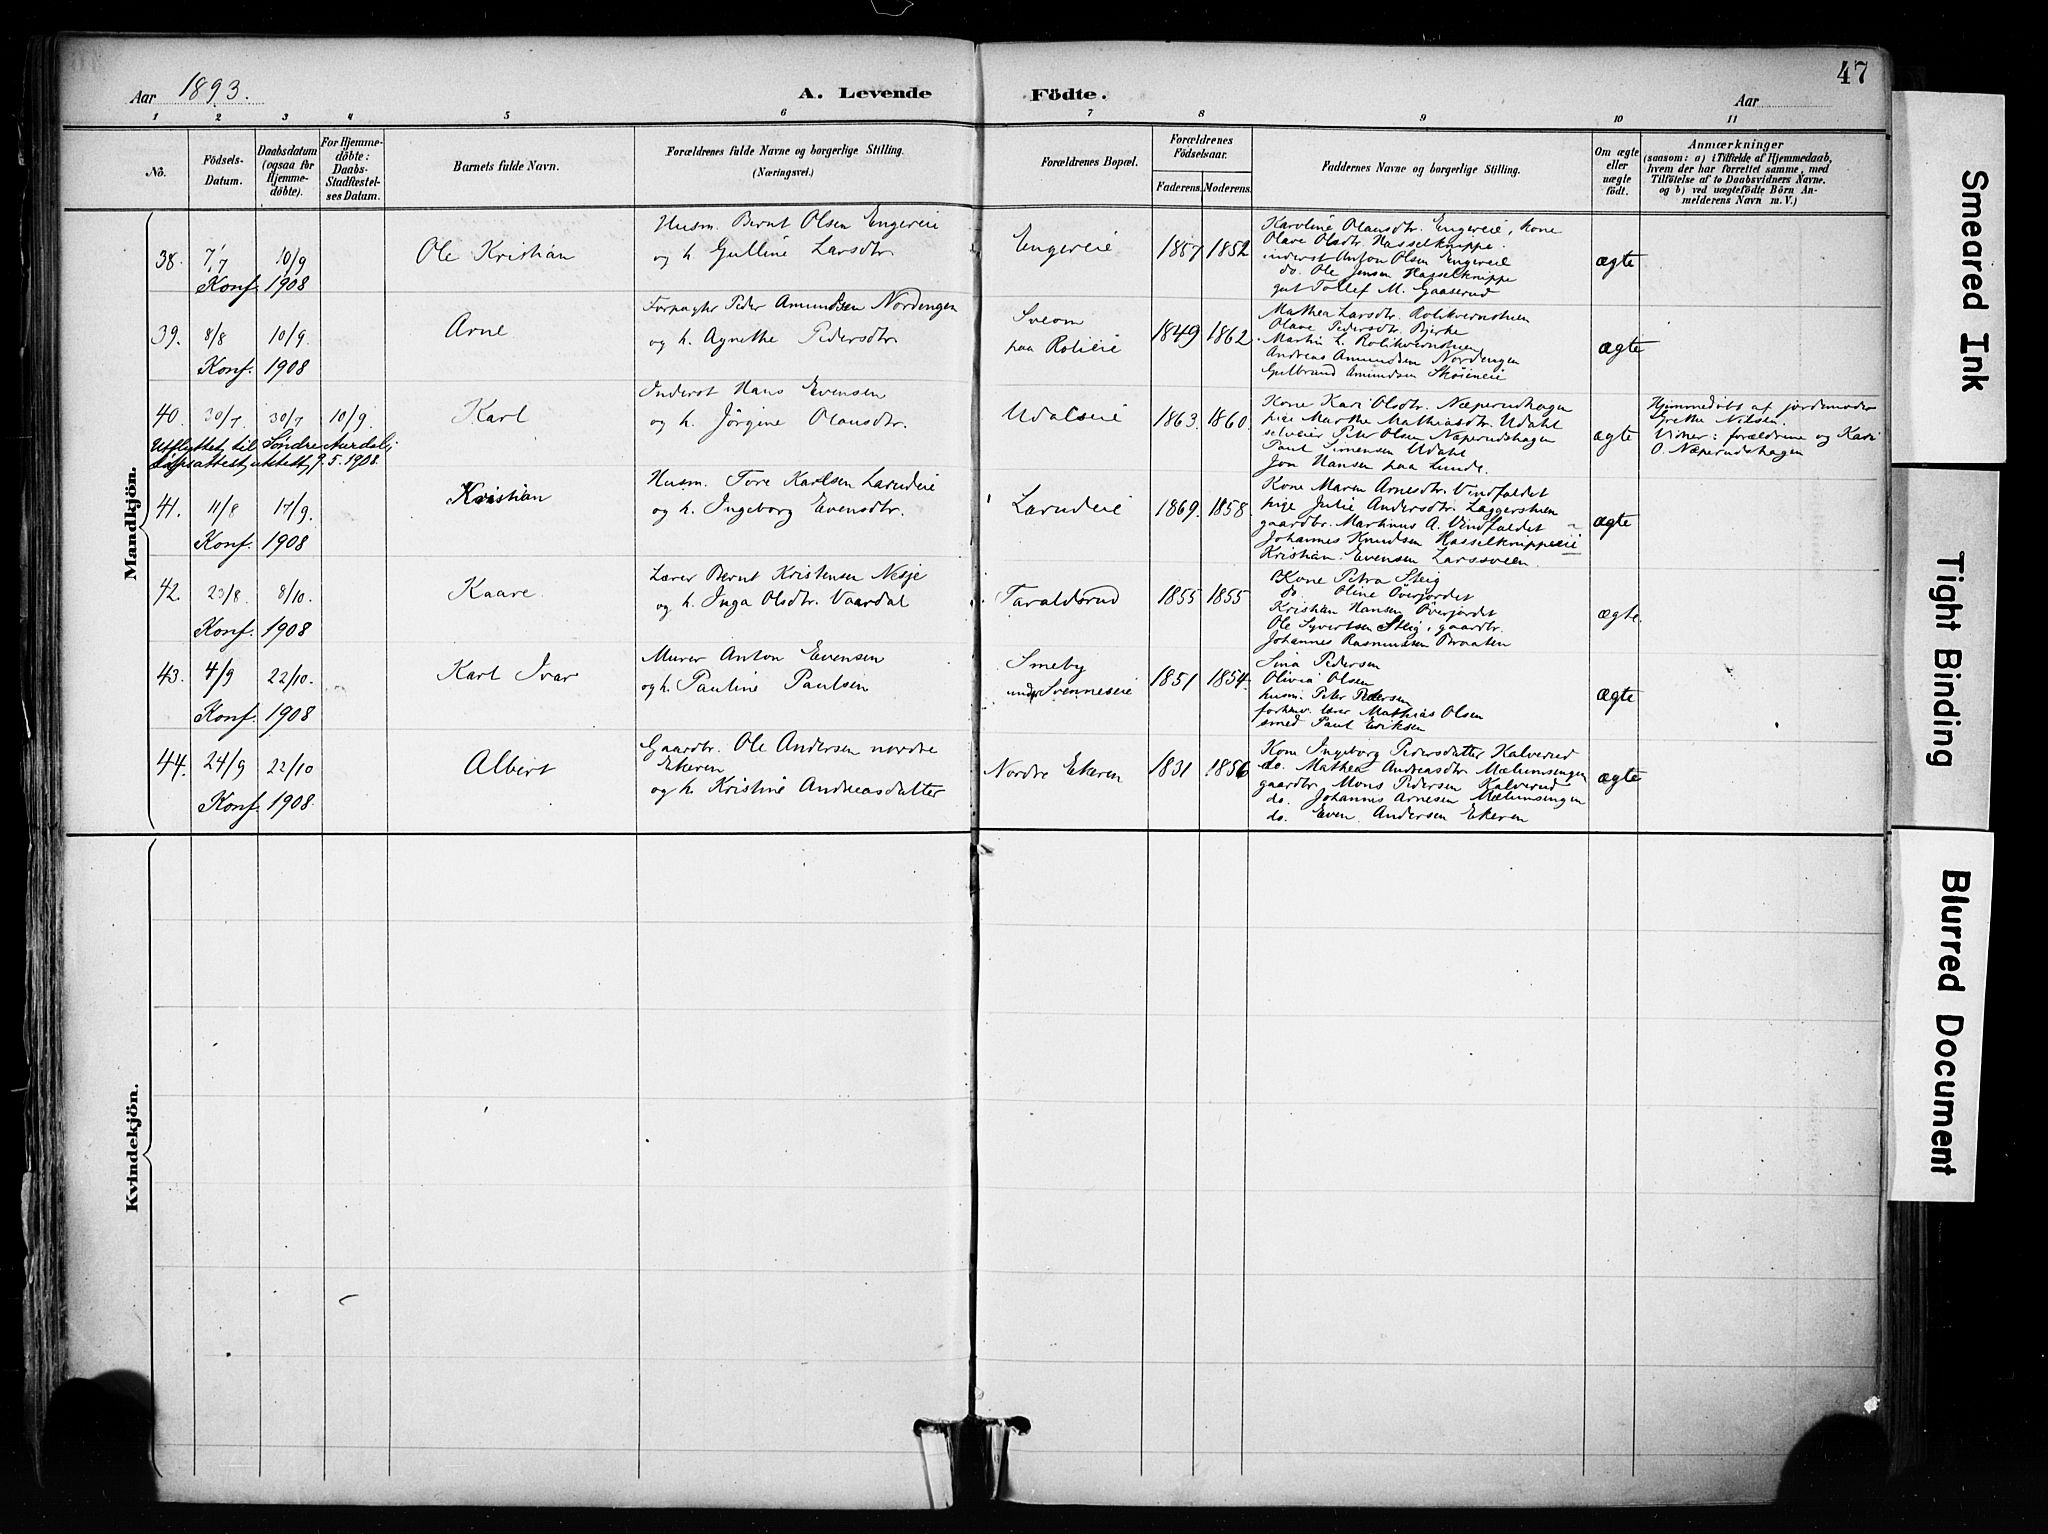 47
Aar 1893.
A. Levende Födte.
Aar
1 2 3 4 5 6 7 8 9 10 11
No.
Födsels-
Datum.
Daabsdatum
(ogsaa for
Hjemme-
döbte).
For Hjemme-
döbte:
Daabs-
Stadfæstel-
ses Datum.
Barnets fulde Navn.
Forældrenes fulde Navne og borgerlige Stilling.
(Næringsvei.)
Forældrenes Bopæl.
Forældrenes
Födselsaar.
Faderens. Moderens.
Faddernes Navne og borgerlige Stilling.
Om ægte
eller
uægte
födt.
Anmærkninger
(saasom: a) i Tilfælde af Hjemmedaab,
hvem der har forrettet samme, med
Tilföielse af to Daabsvidners Navne.
og b) ved uægtefödte Börn An-
melderens Navn m. V.)
Mandkjön.
38. 7/7 10/9
Konf. 1908
Ole Kristian
Husm. Bernt Olsen Engereie
og h. Gulline Larsdtr.
Engereie
1857 1852
Karoline Olausdtr. Engereie, kone
Olave Olsdtr. Hasselknippe.
inderst Anton Olsen Engereie
do. Ole Jensen Hasselknippe
gut Tollef M. Gaaserud
ægte
39. 8/8 10/9.
Konf. 1908
Arne
Forpagter Peder Amundsen Nordengen
og h. Agnethe Pedersdtr.
Sveom
paa Rolieie
1849 1862
Mathea Larsdtr. Rolikvernstuen
Olave Pedersdtr. Bjerke
Martin L. Rolikvernstuen
Andreas Amundsen Nordengen
Gulbrand Amundsen Skoieneie
ægte
40. 30/7 30/7 10/9.
Utflyttet til Søndre Aurdal;
utstedt 9.5.1908.
Karl
Inderst Hans Evensen
og h. Jörgine Olausdtr.
Udalseie
1863 1860
Kone Kari Olsdtr. Næperudhagen
pige Marthe Mathiasdtr. Udahl
selveier Peter Olsen Næperudshagen
Paul Simensen Udahl
Jon Hansen paa Lunde.
ægte
Hjemmedöbt af jordemoder
Grethe Nilsen.
Vidner: forældrene og Kari
O. Næperudshagen
41. 11/8 17/9.
Konf. 1908
Kristian
Husm. Tore Karlsen Larudeie
og h. Ingeborg Evensdtr.
Larudeie
1869. 1858
Kone Maren Arnesdtr. Vindfaldet
pige Julie Andersdtr. Laggerstuen
gaardbr. Martinus A. Vindfaldet
Johannes Knudsen Hasselknippeeie
Kristian Evensen Larssveen.
ægte
42. 23/8. 8/10.
Konf. 1908
Kaare.
Lærer Bernt Kristensen Nesje
og h. Inga Olsdtr. Vaardal
Taraldsrud
1855 1855
Kone Petra Steig
do. Oline Överjordet
Kristian Hansen Överjordet
Ole Syvertsen Steig, gaardbr.
Johannes Rasmussen Braaten
ægte.
43. 4/9 22/10.
Konf. 1908
Karl Ivar
Murer Anton Evensen
og h. Pauline Paulsen
Smeby
under Svenneseie
1851 1854.
Sina Pedersen
Olivia Olsen
husm. Peter Pedersen
forhenv. lærer Mathias Olsen
smed Paul Eriksen
ægte
44. 24/9 22/10
Konf. 1908.
Albert
Gaardbr. Ole Andersen nordre
Ekeren
og h. Kristine Andreasdatter
Nordre Ekeren
1831 1856
Kone Ingeborg Pedersdatter Kalverud
do. Mathea Andreasdtr. Mælumsingen
gaardbr. Mons Pedersen Kalverud
do. Johannes Arnesen Mælumsingen
do. Even Andersen Ekeren
ægte
Kvindekjön.
Smeared Ink
Tight Binding
Blurred Document